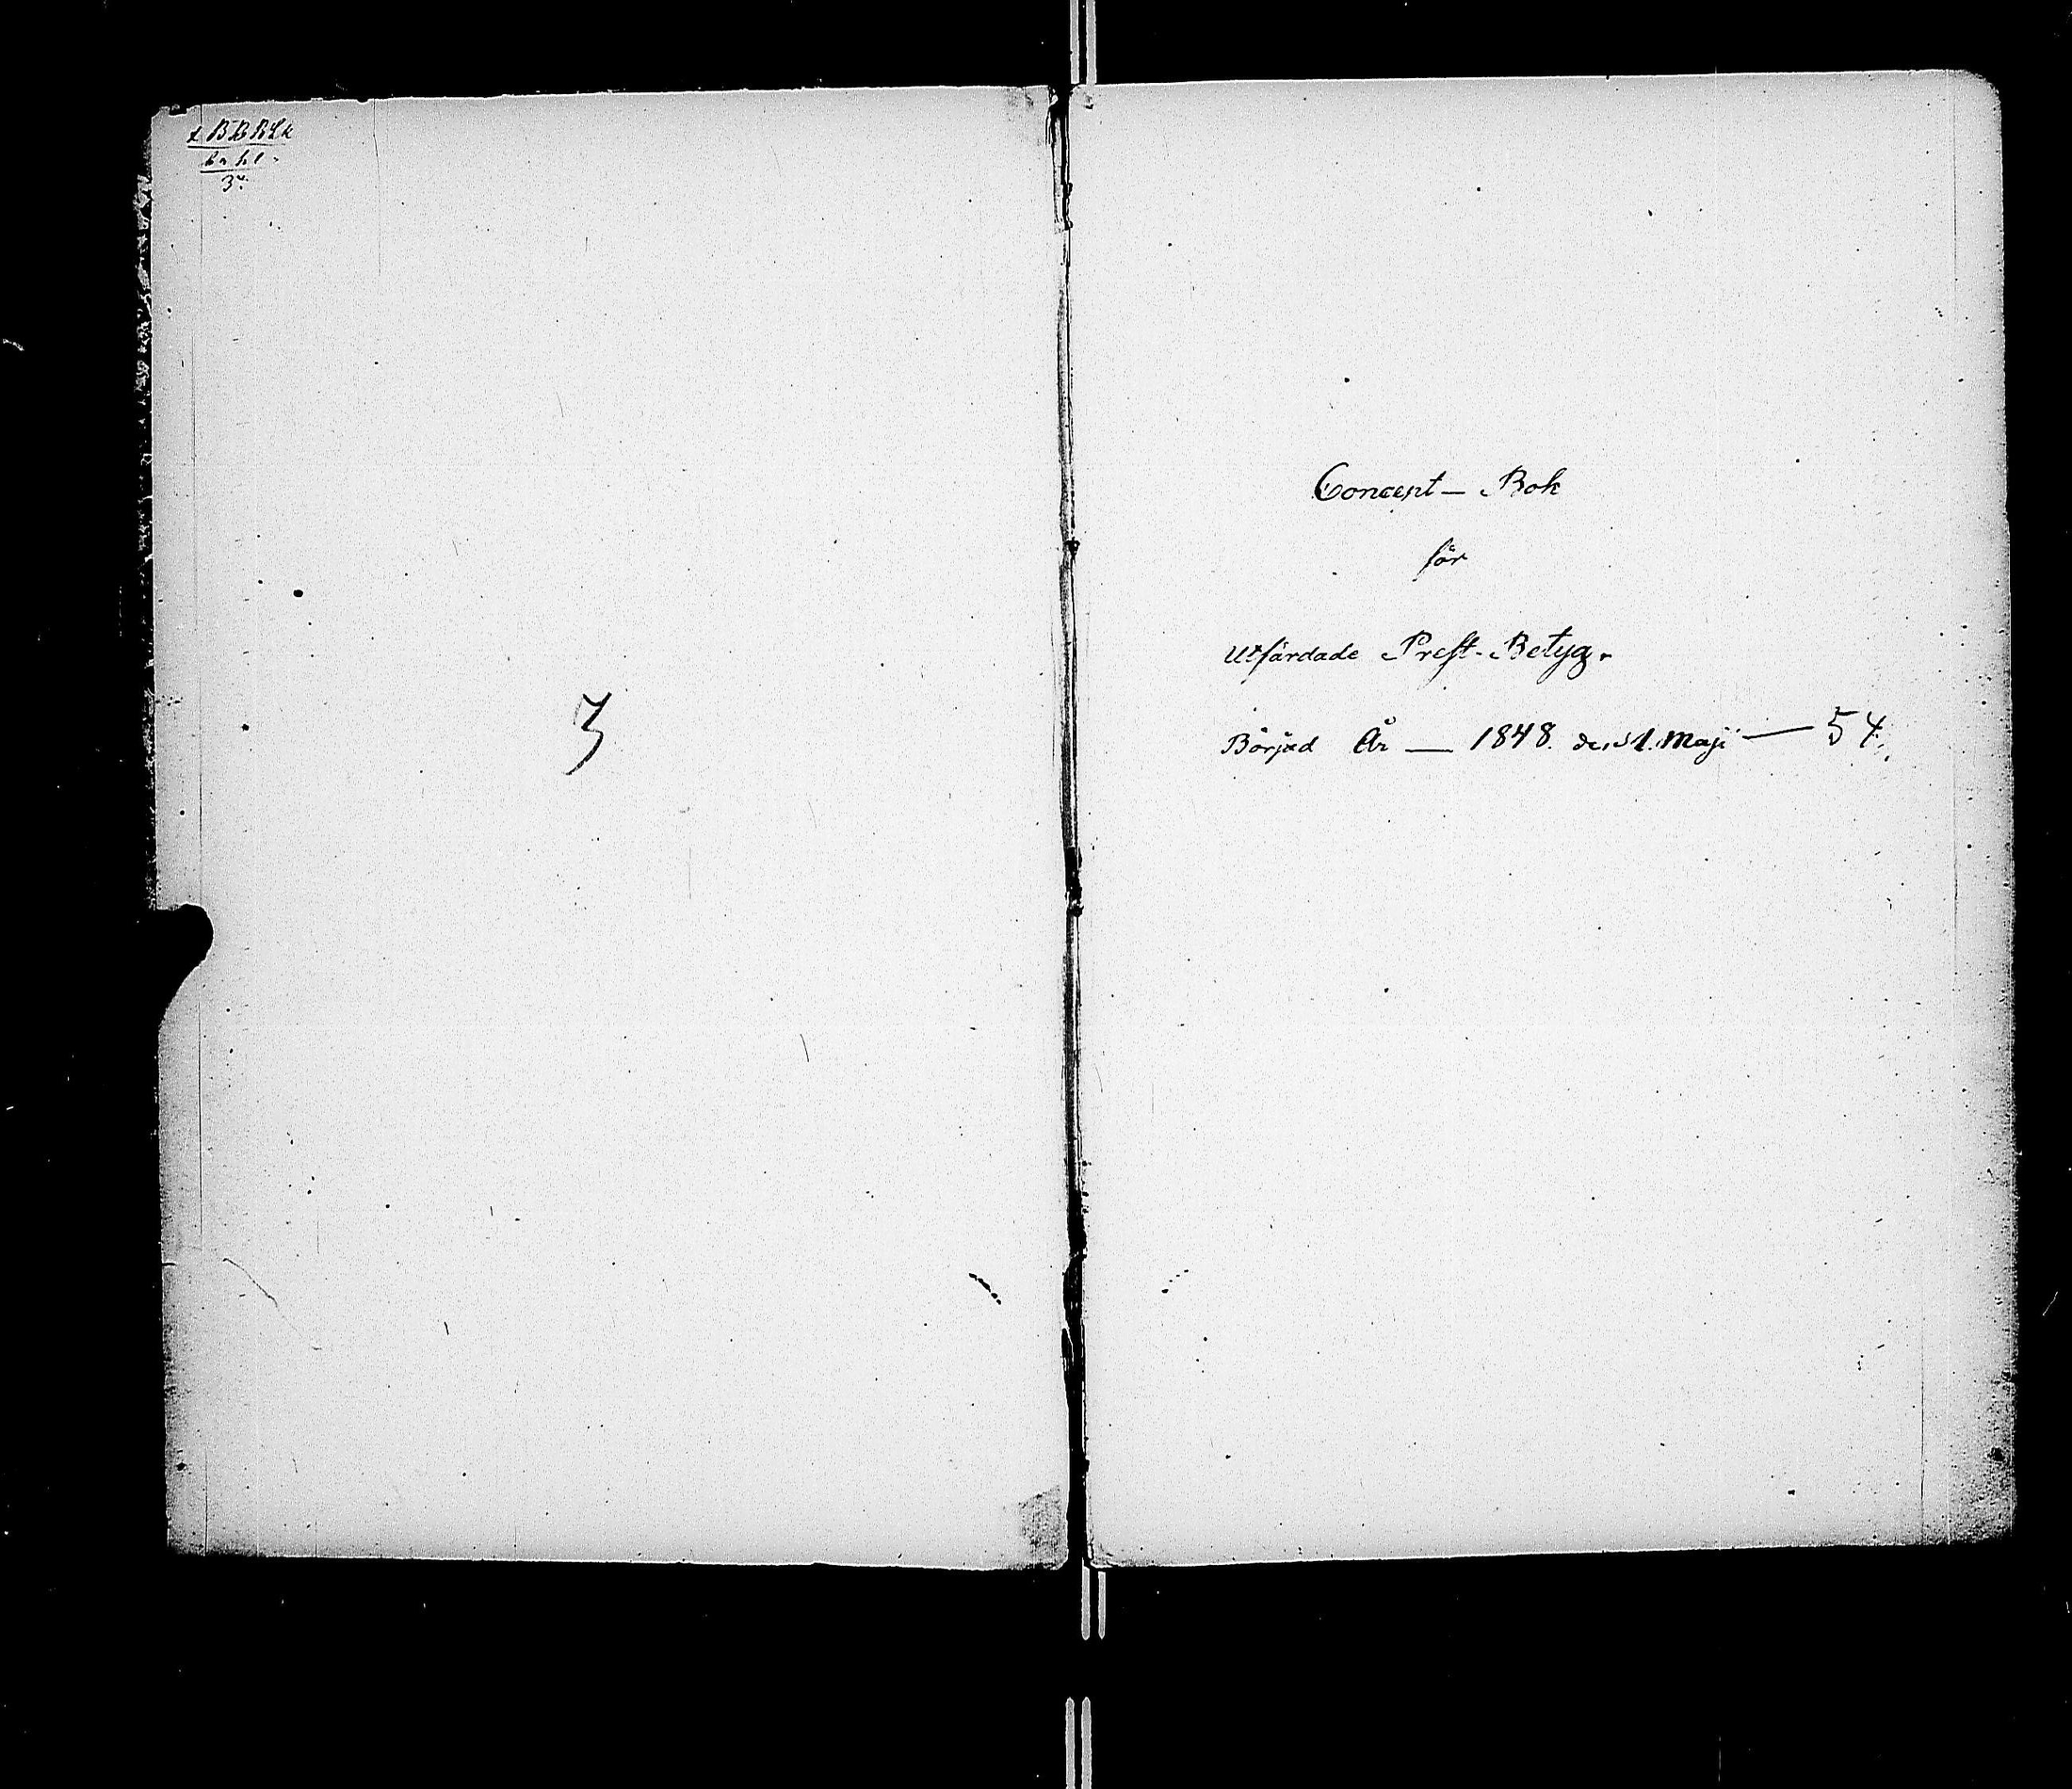 3
Concept — Bok
för
Utfärdade Prest-Betyg.
Börjad År — 1848. den 1. Maji — 54.